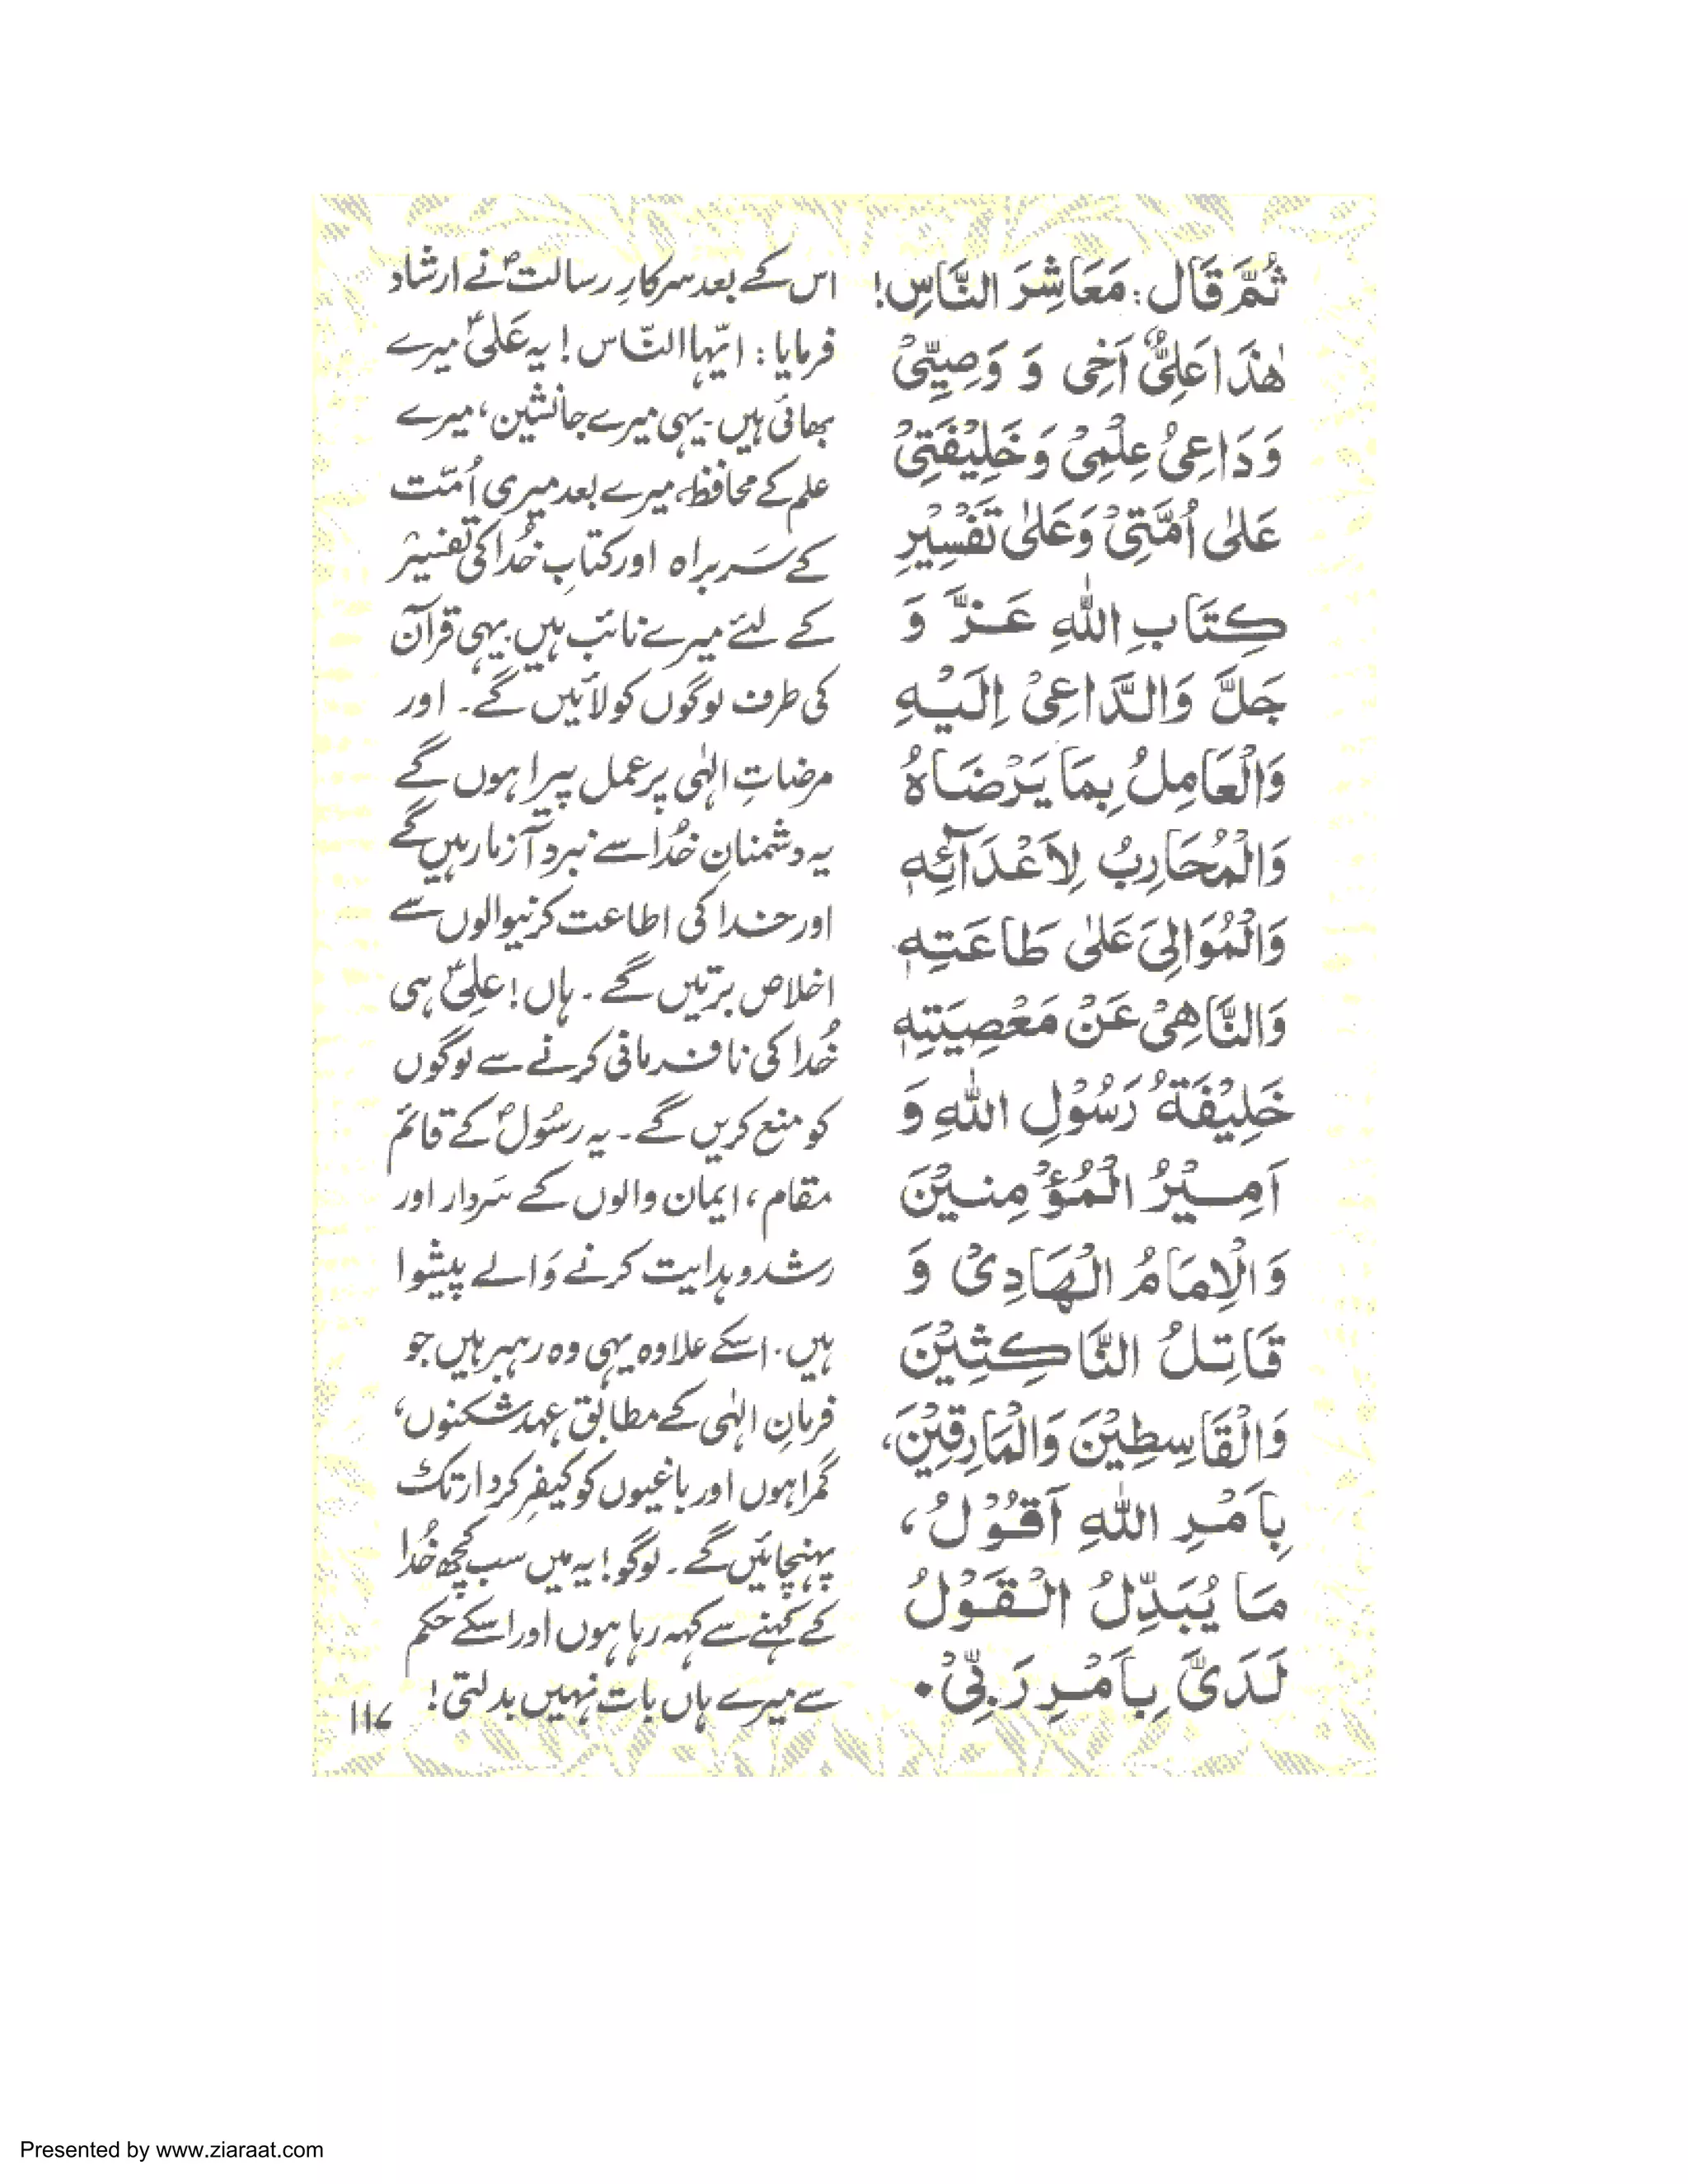 ثُمَّ قَالَ: مَعَاشِرَ النَّاسِ!
هٰذَا عَلِیٌّ اَخِی وَ وَصِیِّیْ
وَ دَاعِیُ عِلْمِیْ وَ خَلِیْفَتِیْ
عَلیٰ اُمَّتِیْ وَعَلیٰ تَفْسِیْرِ
کِتَابِ اللهِ عَزَّ وَ
جَلَّ وَالدَّاعِیْ اِلَیْهِ
وَالْعَامِلُ بِمَا یَرْضَاهُ
وَالْمُحَارِبُ لِاَعْدَآئِهٖ
وَالْمُوَالِیَ عَلیٰ طَاعَتِهٖ
وَالنَّاهِیْ عَنْ مَعْصِیَتِهٖ
خَلِیْفَةُ رَسُوْلِ اللهِ وَ
اَمِیْرُ الْمُؤْمِنِیْنَ
وَالْاِمَامُ الْهَادِیْ وَ
قَاتِلُ النَّاکِثِیْنَ
وَالْقَاسِطِیْنَ وَالْمَارِقِیْنَ،
بِاَمْرِ اللهِ اَقُوْلُ،
مَا یُبَدِّلُ الْقَوْلُ
لَدَیَّ بِاَمْرِ رَبِّیْ۔
اس کے بعد سرکارِ رسالتؐ نے ارشاد
فرمایا: ایّہا النّاس! یہ عَلیؑ میرے
بھائی ہیں۔ یہی میرے جانشین، میرے
علم کے محافظ، میرے بعد میری اُمّت
کے سَربراہ اور کتابِ خُدا کی تفسیر
کے لئے میرے نائب ہیں۔ یہی قرآن
کی طرف لوگوں کو لائیں گے۔ اور
مرضاتِ الٰہی پر عمل پیرا ہوں گے
یہ دشمنانِ خُدا سے نبرد آزما رہیں گے
اور خدا کی اطاعت کرنیوالوں سے
اخلاص برتیں گے۔ ہاں! علیؑ ہی
خُدا کی نافرمانی کرنے سے لوگوں
کو منع کریں گے۔ یہ رسُولؐ کے قائم
مقام، ایمان والوں کے سَردار اور
رشد و ہدایت کرنے وَالے پیشوا
ہیں۔ اسکے علاوہ یہی وہ رہبر ہیں جو
فرمانِ الٰہی کے مطابق عہد شکنوں،
گمراہوں اور باغیوں کو کیفرِ کردار تک
پہنچائیں گے۔ لوگو! یہ میں سب کچھ خُدا
کے کہنے سے کہہ رہا ہوں اور اسکے حکم
سے میرے ہاں بات نہیں بدلتی!
۱۱۷
Presented by www.ziaraat.com